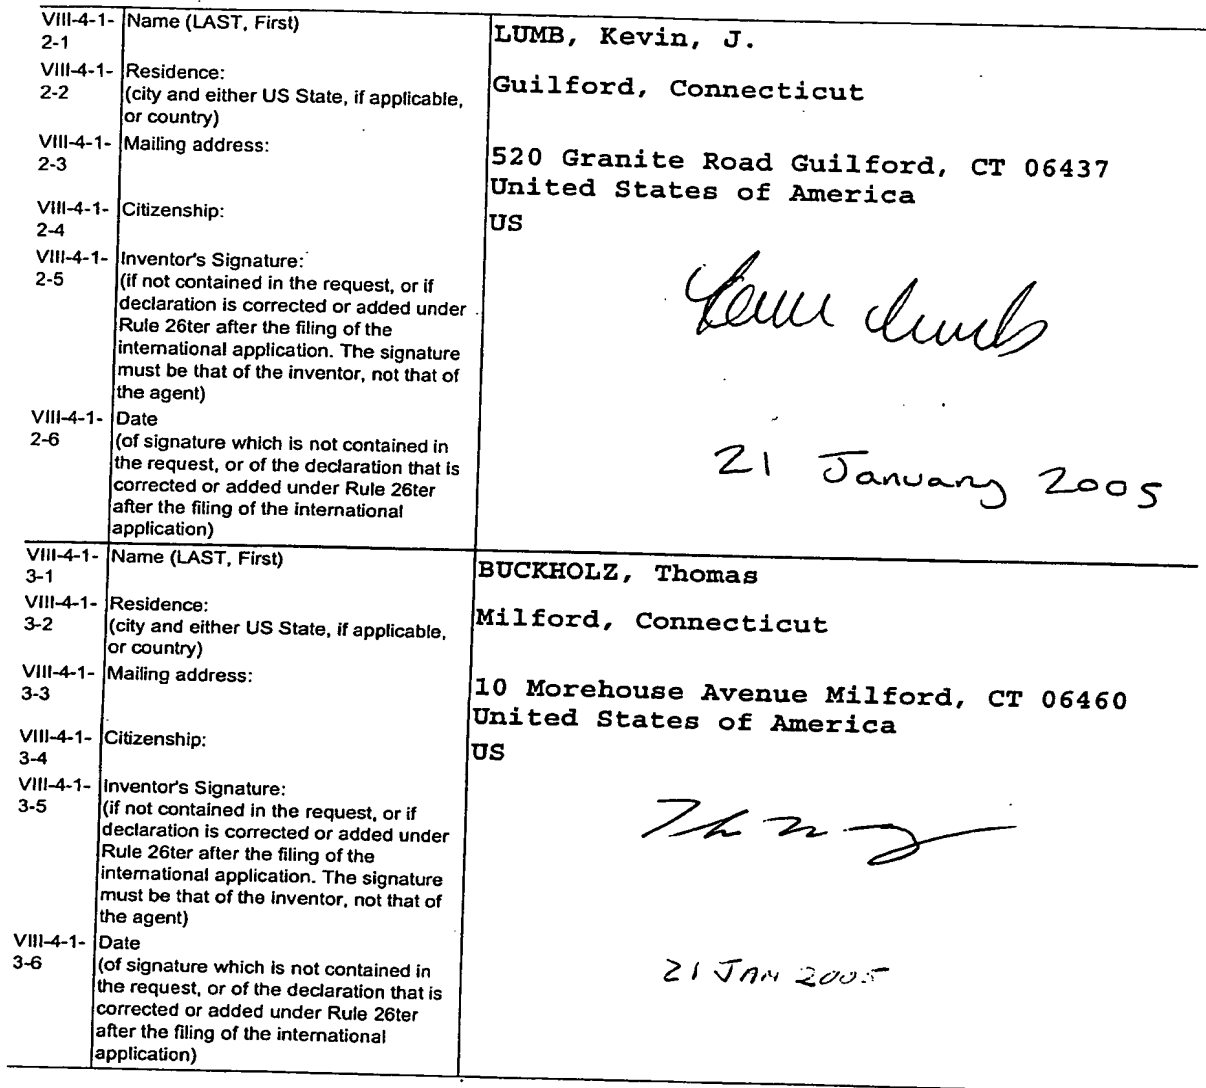 VIII-4-1-
2-1
Name (LAST, First)
LUMB, Kevin, J.
VIII-4-1-
2-2
Residence:
(city and either US State, if applicable,
or country)
Guilford, Connecticut
VIII-4-1-
2-3
Mailing address:
520 Granite Road Guilford, CT 06437
United States of America
VIII-4-1-
2-4
Citizenship:
US
VIII-4-1-
2-5
Inventor's Signature:
(if not contained in the request, or if
declaration is corrected or added under
Rule 26ter after the filing of the
international application. The signature
must be that of the inventor, not that of
the agent)
VIII-4-1-
2-6
Date
(of signature which is not contained in
the request, or of the declaration that is
corrected or added under Rule 26ter
after the filing of the international
application)
21 January 2005
VIII-4-1-
3-1
Name (LAST, First)
BUCKHOLZ, Thomas
VIII-4-1-
3-2
Residence:
(city and either US State, if applicable,
or country)
Milford, Connecticut
VIII-4-1-
3-3
Mailing address:
10 Morehouse Avenue Milford, CT 06460
United States of America
VIII-4-1-
3-4
Citizenship:
US
VIII-4-1-
3-5
Inventor's Signature:
(if not contained in the request, or if
declaration is corrected or added under
Rule 26ter after the filing of the
international application. The signature
must be that of the inventor, not that of
the agent)
VIII-4-1-
3-6
Date
(of signature which is not contained in
the request, or of the declaration that is
corrected or added under Rule 26ter
after the filing of the international
application)
21 JAN 2005